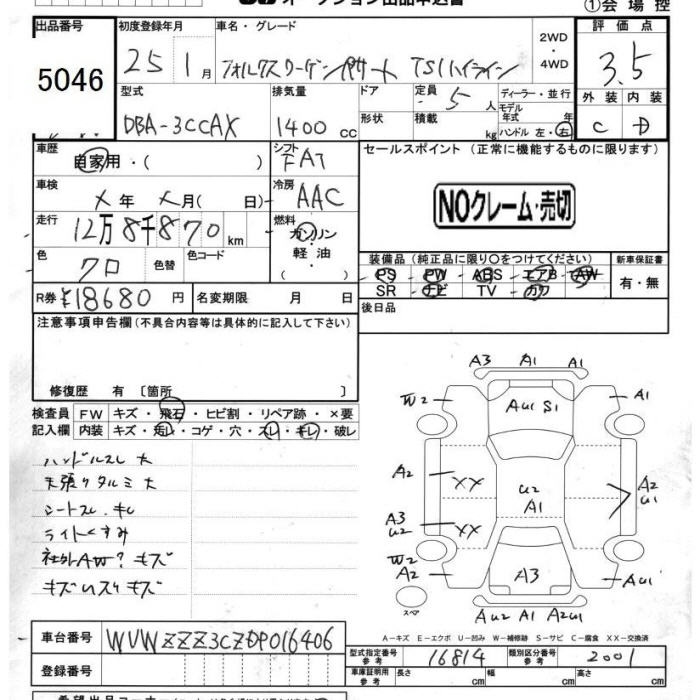 オークション出品申込書
①会場控
出品番号
5046
初度登録年月
25 1月
車名・グレード
フォルクスワーゲン パサート TSIハイライン
2WD
・
4WD
評価点
3.5
外装 内装
C D
型式
DBA-3CCAX
排気量
1400 cc
ドア
形状
定員 5 人
積載 kg
ディーラー・並行
モデル年式 年
ハンドル 左・右
車歴
自家用・( )
シフト
FAT
セールスポイント (正常に機能するものに限ります)
NOクレーム・売切
車検
メ年 メ月( 日)
冷房
AAC
走行
12万8千870km
燃料
ガソリン
軽油
・( )
色
クロ
色替
色コード
装備品 (純正品に限り○をつけてください)
PS PW ABS エアB AW
SR ナビ TV カワ
新車保証書
有・無
R券 ¥18680 円
名変期限 月 日
後日品
注意事項申告欄 (不具合内容等は具体的に記入して下さい)
修復歴 有 〔箇所 〕
検査員 FW キズ・飛石・ヒビ割・リペア跡・×要
記入欄 内装 キズ・汚レ・コゲ・穴・スレ・キレ・破レ
ハンドルスレ 大
天張りタルミ 大
シートスレ キレ
ライトくすみ
社外AW? キズ
A3 A1 A1
W2 AU1 S1 A1
A2 XX U2 A1 A2 U1
A3 U2 XX
W2 A2 A3 AU1
AU2 A1 A2U1
スペア
A-キズ E-エクボ U-凹み W-補修跡 S-サビ C-腐食 XX-交換済
車台番号 WVWZZZ3CZDP016406
型式指定番号 参考 16814 類別区分番号 参考 2001
登録番号
車庫証明用 参考 長さ cm 幅 cm 高さ cm